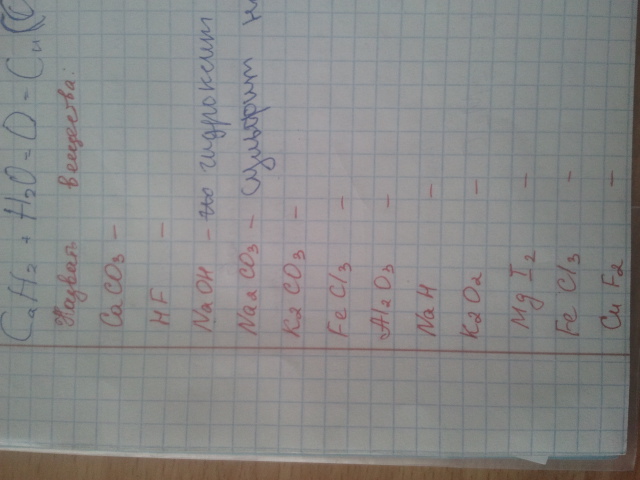 CaH2 + H2O = O = Cu(
Назвать вещества:
CaCO3 –
HF –
NaOH – гидроксит
Na2CO3 – сульфит
K2CO3 –
FeCl3 –
Al2O3 –
NaH –
K2O2 –
MgI2 –
FeCl3 –
CuF2 –